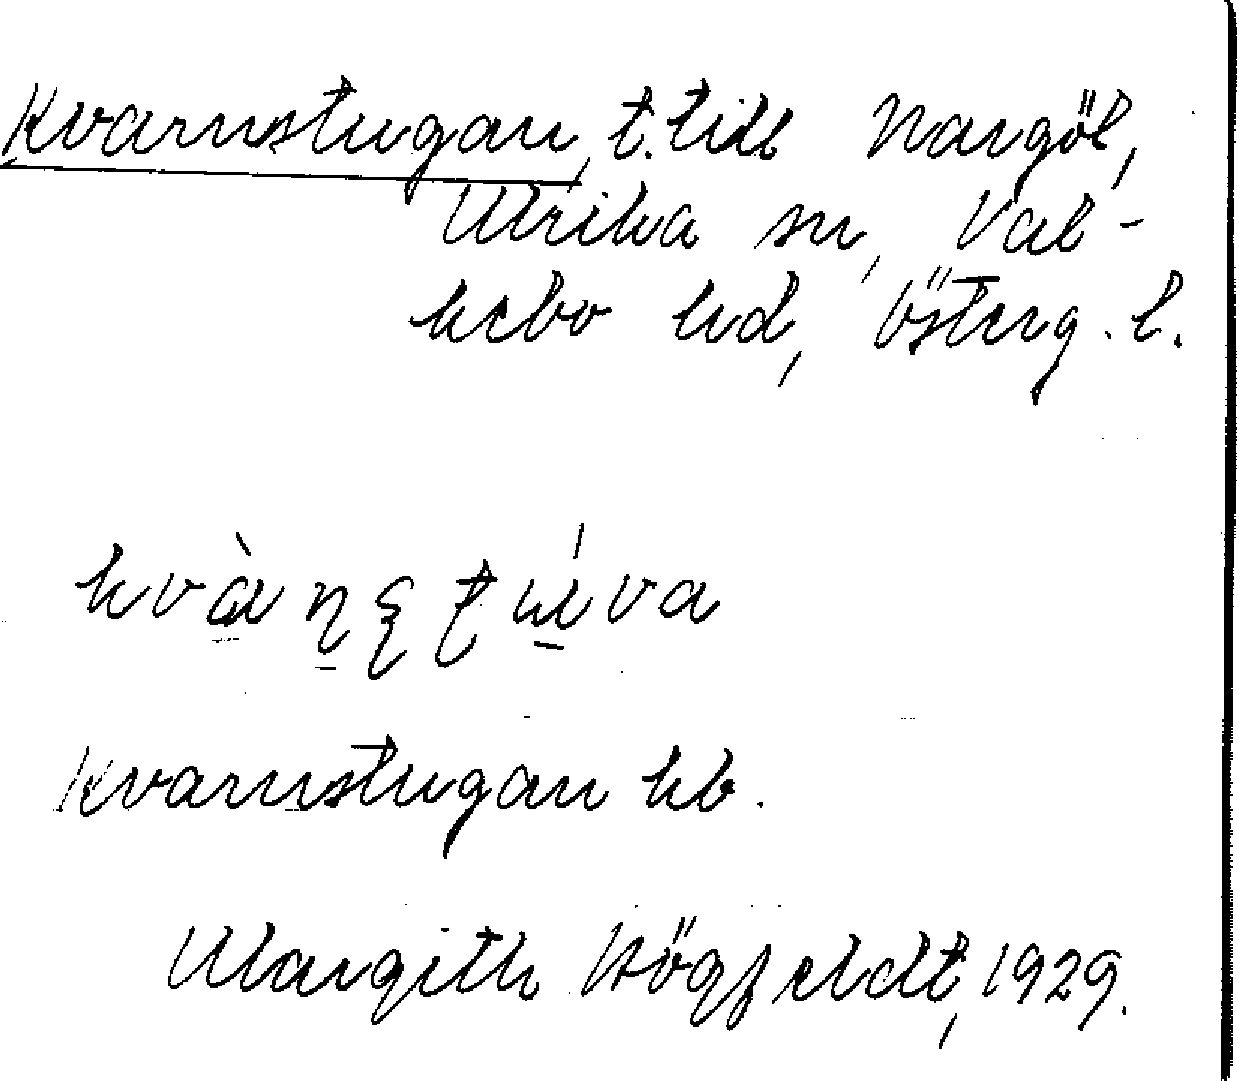 Kvarnstugan, t. till Nargöl,
Ulrika sn, Val-
kebo hd, Österg. l.
kvàṇʂṭúva
Kvarnstugan kb.
Margith Högfeldt, 1929.